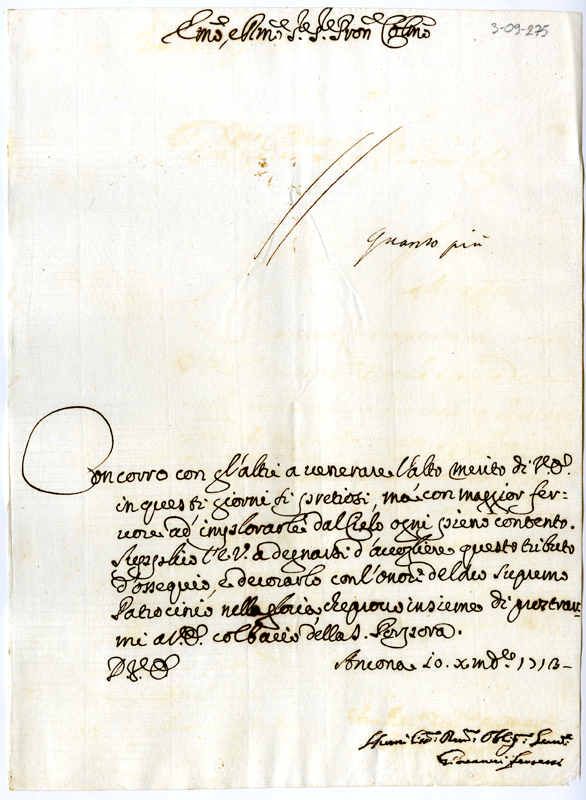 Emõ, e Rmõ Sr. Sr. Pron Colmõ
3-09-275
quanto più
Concorro con gl'altri a venerare l'alto merito di V. E.
in questi giorni sì pretiosi, mà con maggior fer-
vore ad' implorarle dal Cielo ogni pieno contento.
Supplico l'E. V. a degnarsi d'accogliere questo tributo
d'ossequio, e decorarlo con l'onore del suo supremo
Patrocinio, nella gloria, che provo insieme di prostrar-
mi a V. E. col bacio della S. Porpora.
D. V. E.
Ancona 20. xmbre 1713
Humo Devo: Oblig: Serv
Giovanni